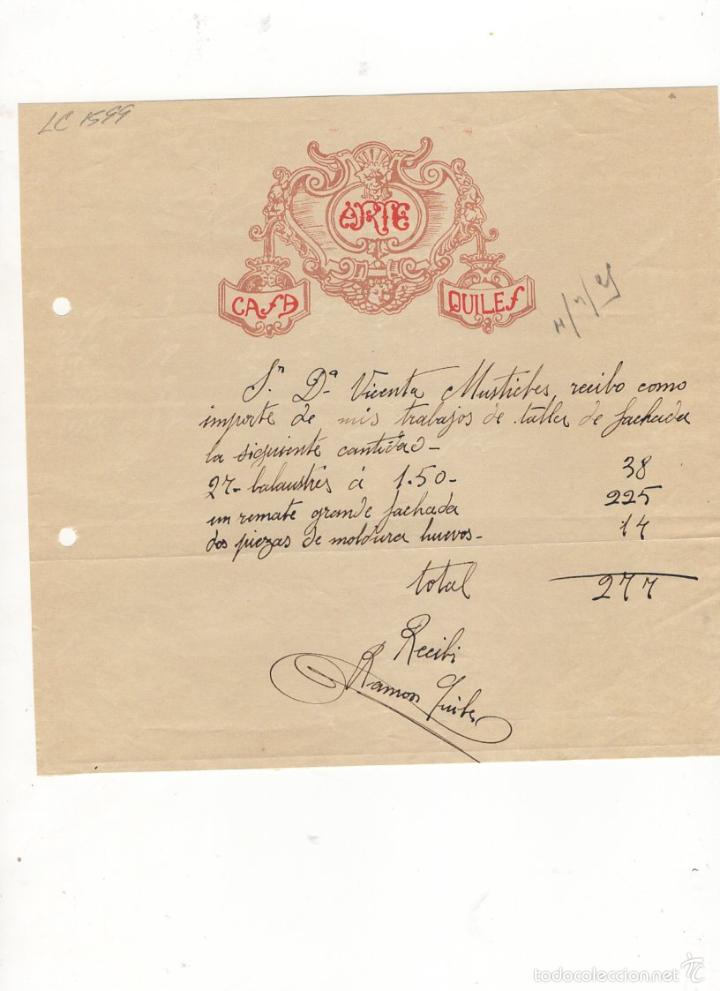 LC 1599
ARTE
CASA QUILES
Sn. Dª Vicenta recibo como
importe de mis trabajos de taller de fachada
la siguiente cantidad-
27- balaustres á 1.50- 38
un remate grande fachada 225
dos piezas de moldura huevos- 14
total 277
Recibi
Ramon Quiles
todocoleccion.net